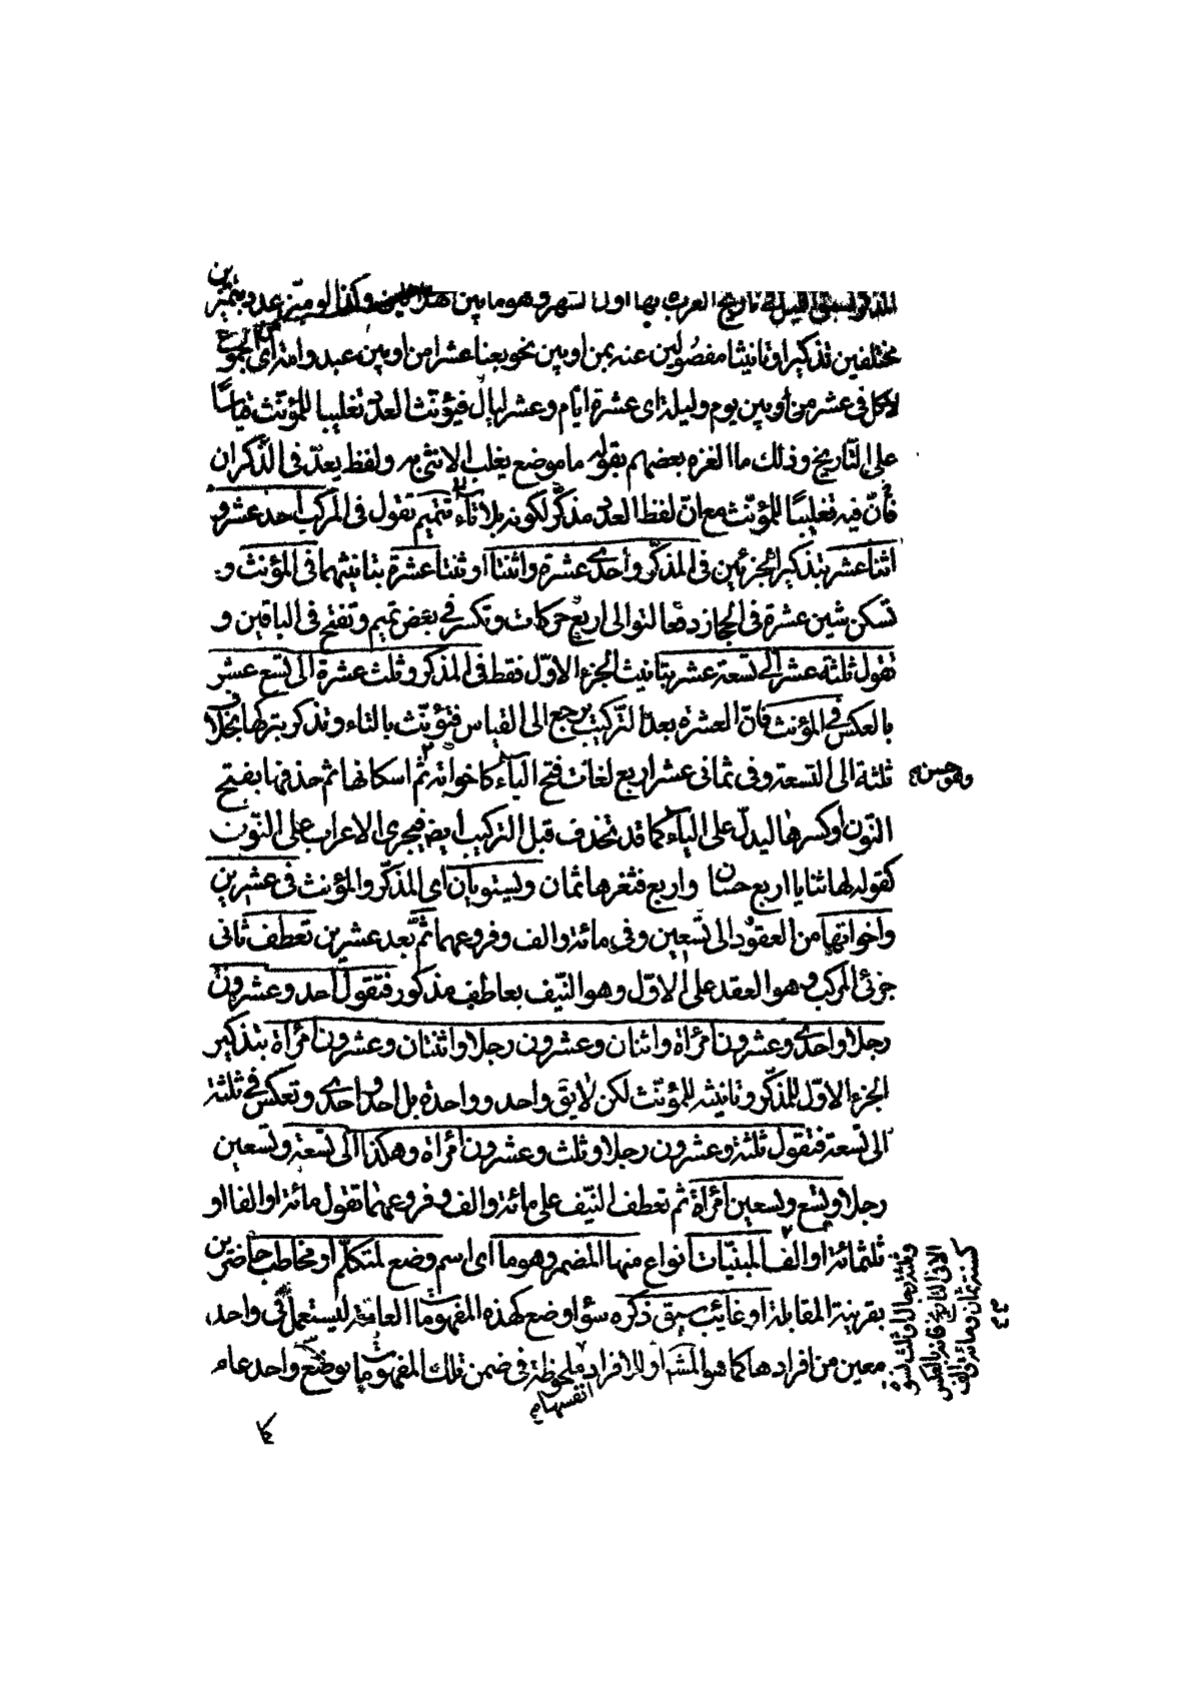 العرب بها اول الشهر وهو ما بين وكذا لو ميّز عدد بتميزين
مختلفين تذكيرا وتانيثا مفصولين عنه بمن او بين نحو بعنا عشرا من او بين عبد وامة اى
لا كل فى عشر من او بين يوم وليلة اى عشرة ايام وعشر ليال فيؤنّث العدد تغليبا للمؤنّث قياسًا
على التّاريخ وذلك ما الغزه بعضهم بقوله ما موضع يغلب الانثى به ولفظ يعدّ فى الذّكران
فانّ فيه تغليبًا للمؤنّث مع انّ لفظ العدد مذكّر لكونه بلا تاء تتميم تقول فى المركب احد عشر و
اثنا عشر بتذكير الجزئين فى المذكّر واحدى عشرة واثنتا او ثنتا عشرة بتانيثهما فى المؤنث و
تسكن شين عشرة فى الحجاز دفعا لتوالى اربع حركات وتكسر فى بعض تميم وتفتح فى الباقين و
تقول ثلثة عشر الى تسعة عشر بتانيث الجزء الاوّل فقط فى المذكر وثلث عشرة الى تسع عشر
بالعكس فى المؤنث فانّ العشرة بعد التّركيب يرجع الى القياس فتؤنّث بالتاء وتذكر بتركها بخلاف
ثلثة الى التسعة وفى ثمانى عشر اربع لغات فتح الياء كاخواته ثمّ اسكانها ثم حذفها بفتح
وهو حسن
النّون او كسرها ليدلّ على الياء كما قد تحذف قبل التركيب ايضا فيجرى الاعراب على النّون
كقوله لها ثنايا اربع حسان واربع فثغرها ثمان ويستويان اى المذكّر والمؤنث فى عشرين
واخواتها من العقود الى تسعين وفى مائة والف وفروعهما ثمّ بعد عشرين تعطف ثانى
جزئى المركب وهو العقد على الاوّل وهو النّيّف بعاطف مذكور فتقول احد وعشرون
رجلا واحدى وعشرون امرأة واثنان وعشرون رجلا واثنتان وعشرون امرأة بتذكير
الجزء الاوّل للمذكّر وتانيثه للمؤنّث لكن لا يق واحد وواحدة بل احد واحدى وتعكس فى ثلثة
الى تسعة فتقول ثلثة وعشرون رجلا وثلث وعشرون امرأة وهكذا الى تسعة وتسعين
رجلا وتسع وتسعين امرأة ثم تعطف النّيّف على مائة والف وفروعهما تقول مائة او الف او
ثلثمائة او الف المبنيّات انواع منها المضمر وهو ما اى اسم وضع لمتكلّم او مخاطب حاضرين
بقرينة المقابلة او غائب سبق ذكره سواء وضع لهذه المفهومات العامّة ليستعمل فى واحد
معين من افرادها كما هو المشهور او للافراد ملحوظة فى ضمن تلك المفهومات بوضع واحد عام
انفسها
وثلثة رجال او ثلث نسوة
الا فى التاريخ فانه بالعكس
كسنة ثمان ومائة والف